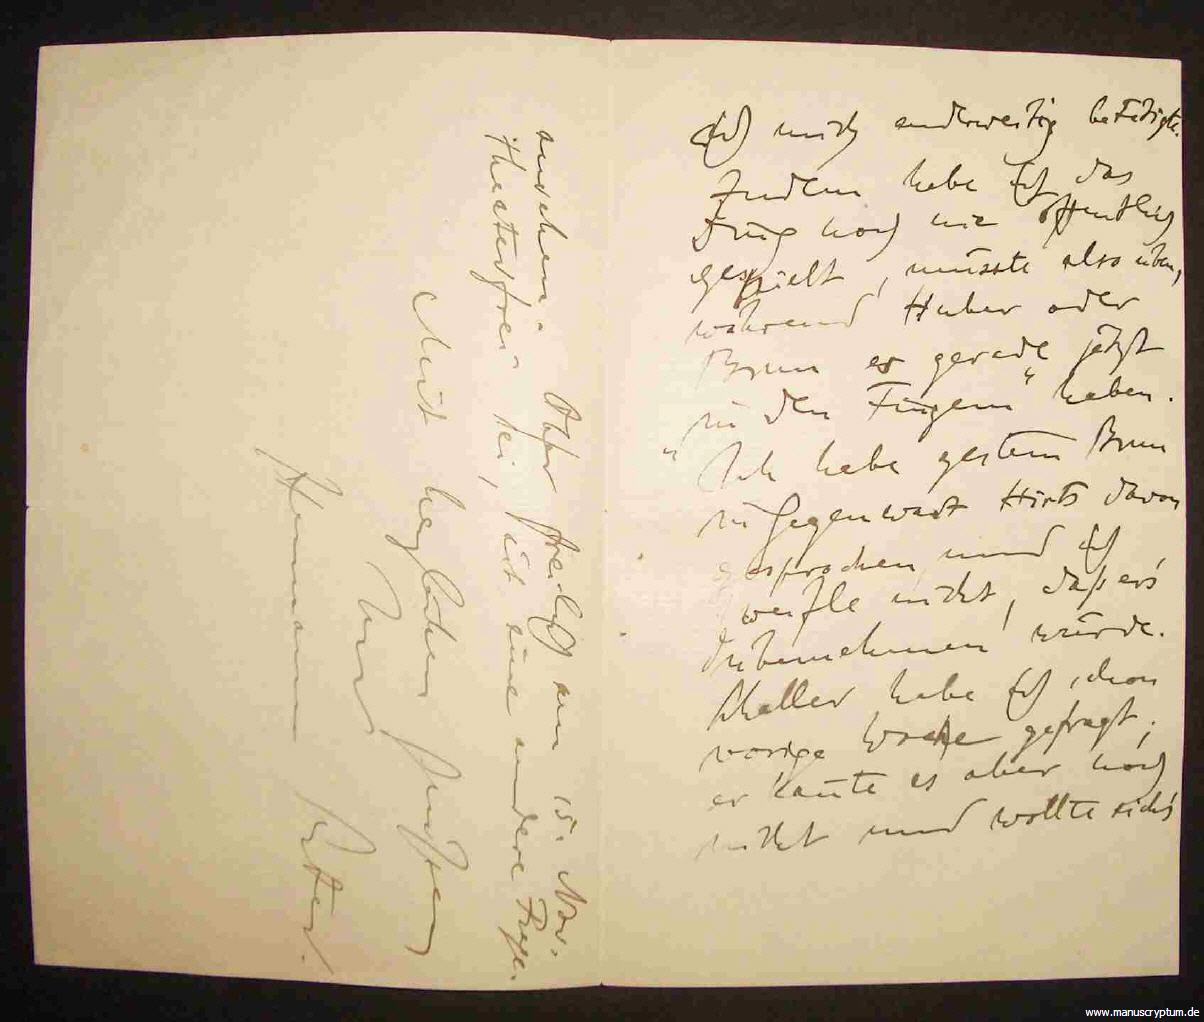 ich mich anderweitig betätigte.
Zudem habe ich das
Ding noch nie öffentlich
gespielt, müsste also üben,
während Huber oder
Brun es gerade jetzt
„in den Fingern“ haben.
Ich habe gestern Brun
in Gegenwart Hirts davon
gesprochen und ich
zweifle nicht, daß er's
übernehmen würde.
habe ich schon
vorige Woche gefragt;
er kannte es aber noch
nicht und wollte sich's
ansehen. Ob er freilich am 15. Nov.
theaterfrei sei, ist eine andere Frage.
Mit herzlichen Grüßen
Ihr
Hermann
www.manuscryptum.de